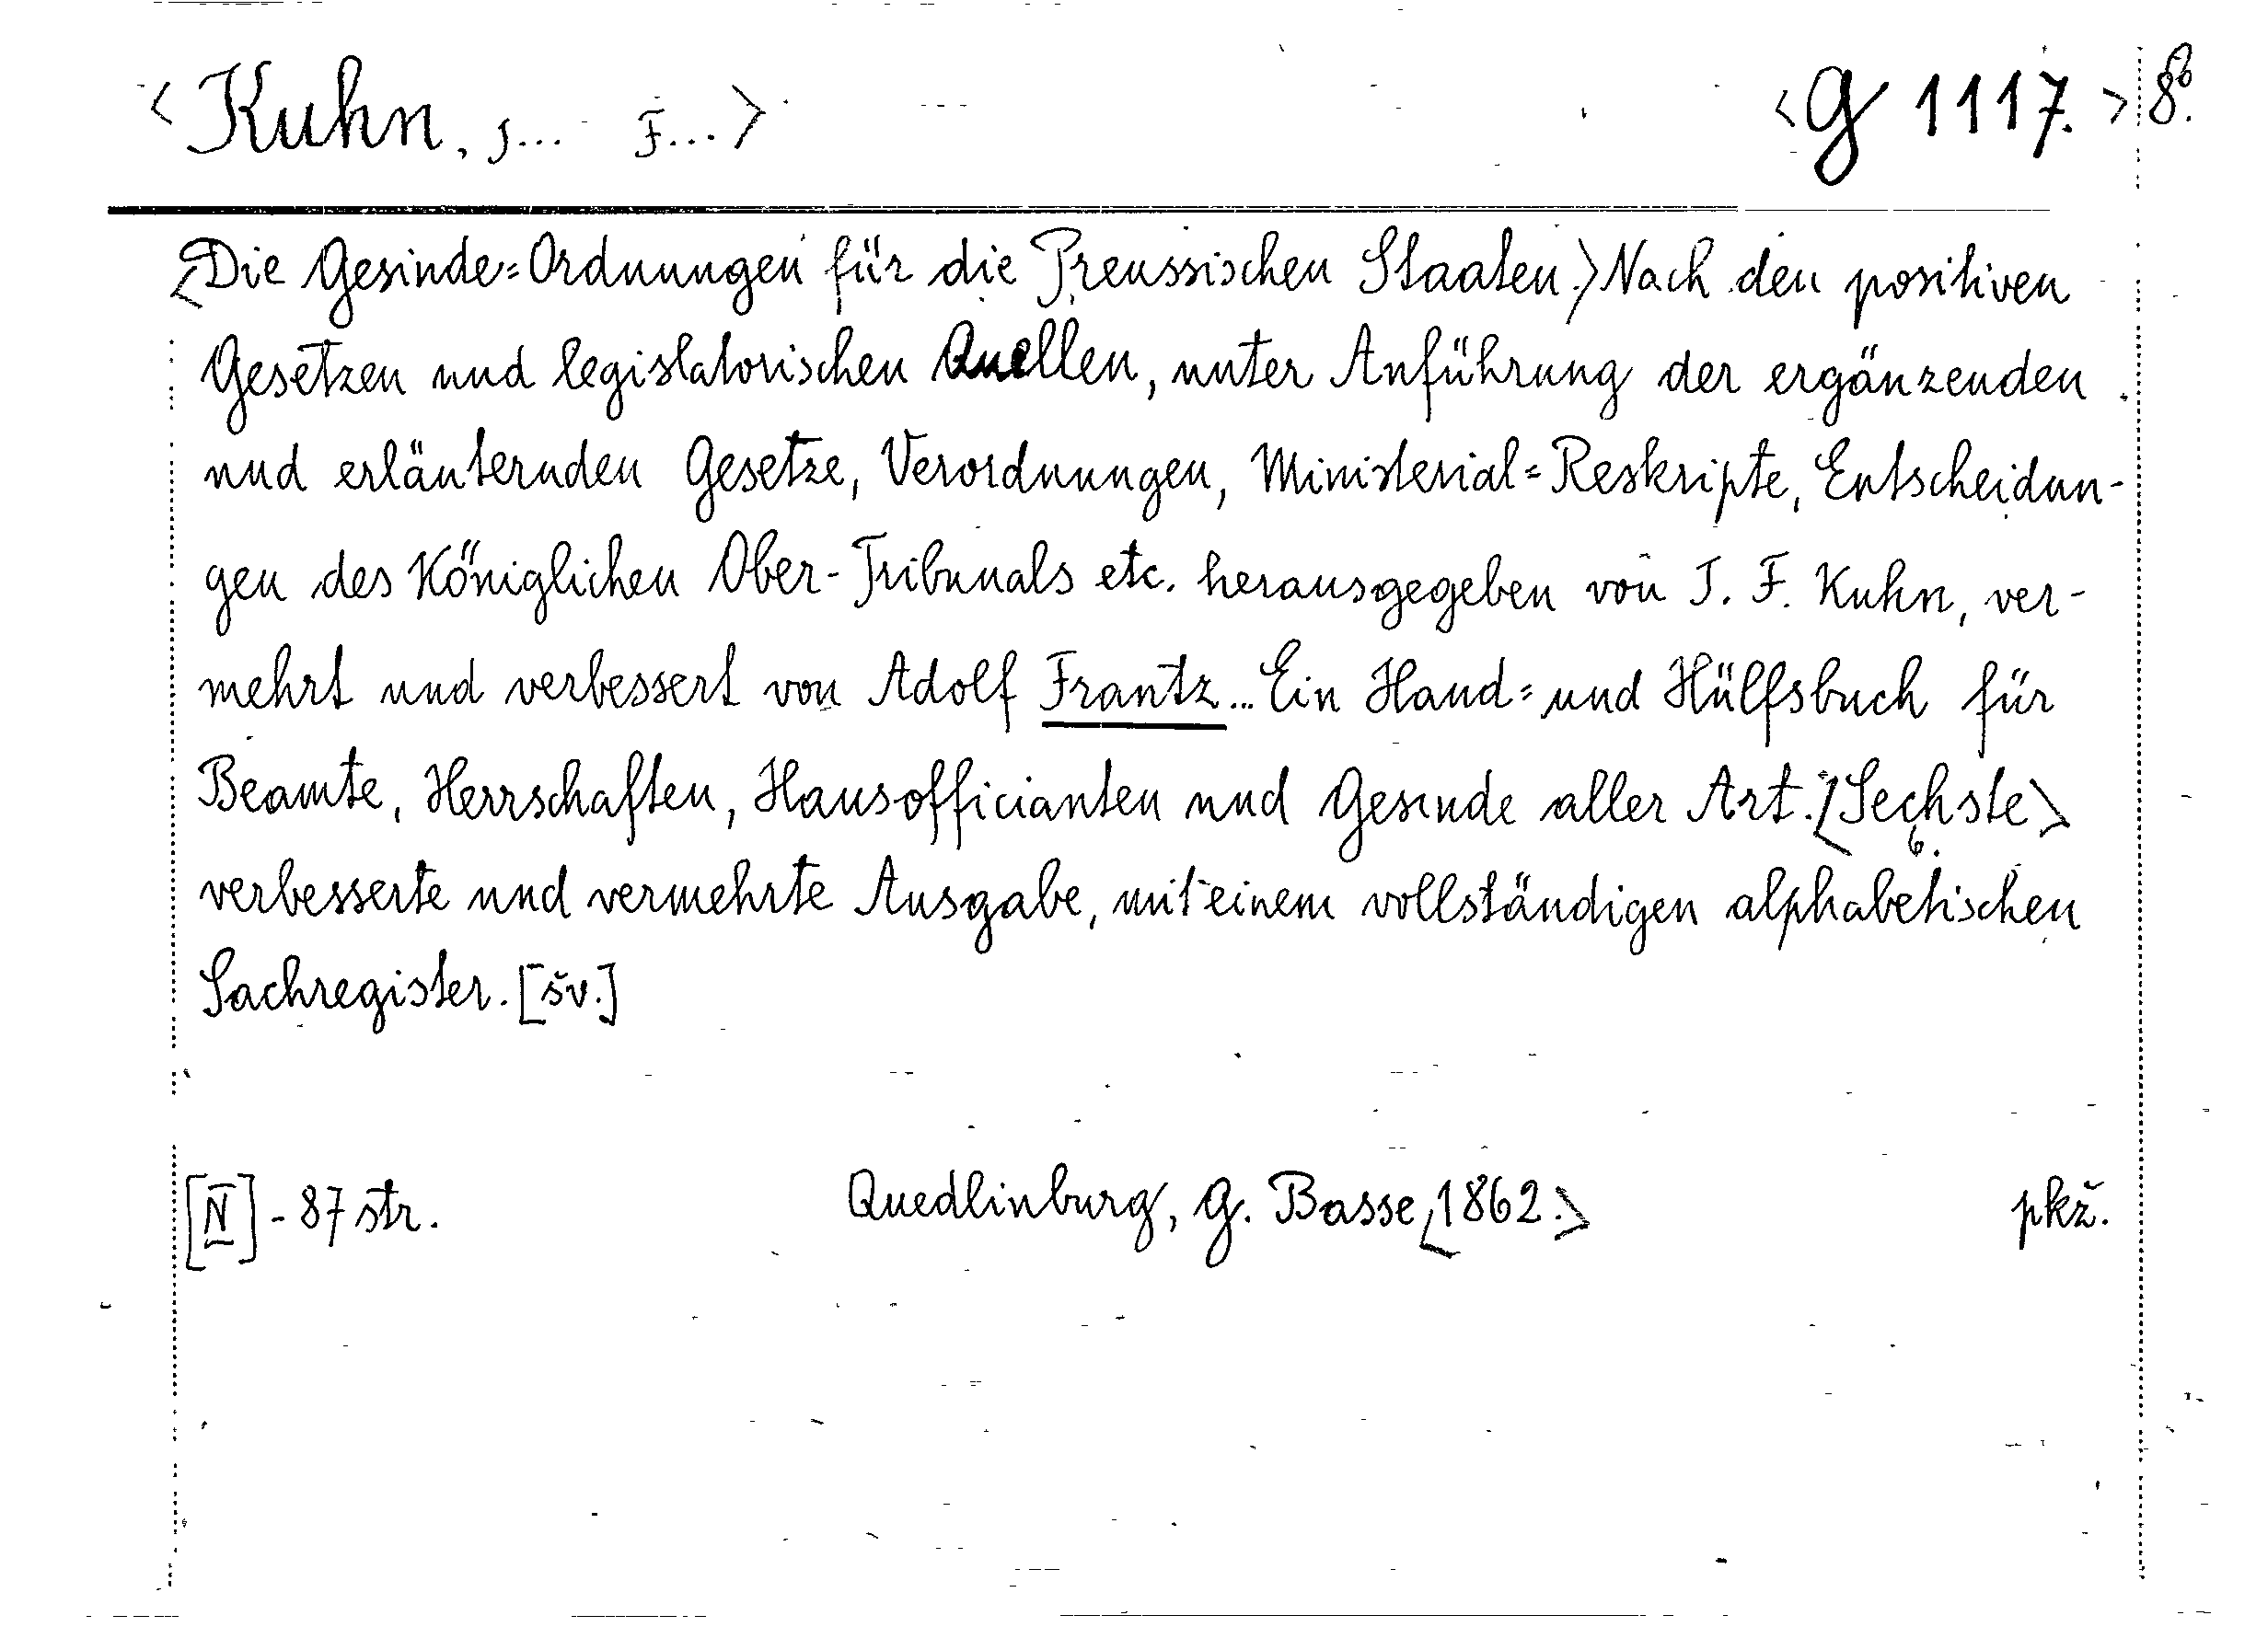 <Kuhn, J... F...> <G 1117.> 8º.
<Die Gesinde=Ordnungen für die Preussischen Staaten.> Nach den positiven
Gesetzen und legislatorischen Quellen, unter Anführung der ergänzenden
und erläuternden Gesetze, Verordnungen, Ministerial=Reskripte, Entscheidun-
gen des Königlichen Ober-Tribunals etc. herausgegeben von J. F. Kuhn, ver-
mehrt und verbessert von Adolf Frantz... Ein Hand= und Hülfsbuch für
Beamte, Herrschaften, Hausofficianten und Gesinde aller Art. <Sechste>
6.
verbesserte und vermehrte Ausgabe, mit einem vollständigen alphabetischen
Sachregister. [šv.]
[IV] - 87 str. Quedlinburg, G. Basse, <1862.> pkž.